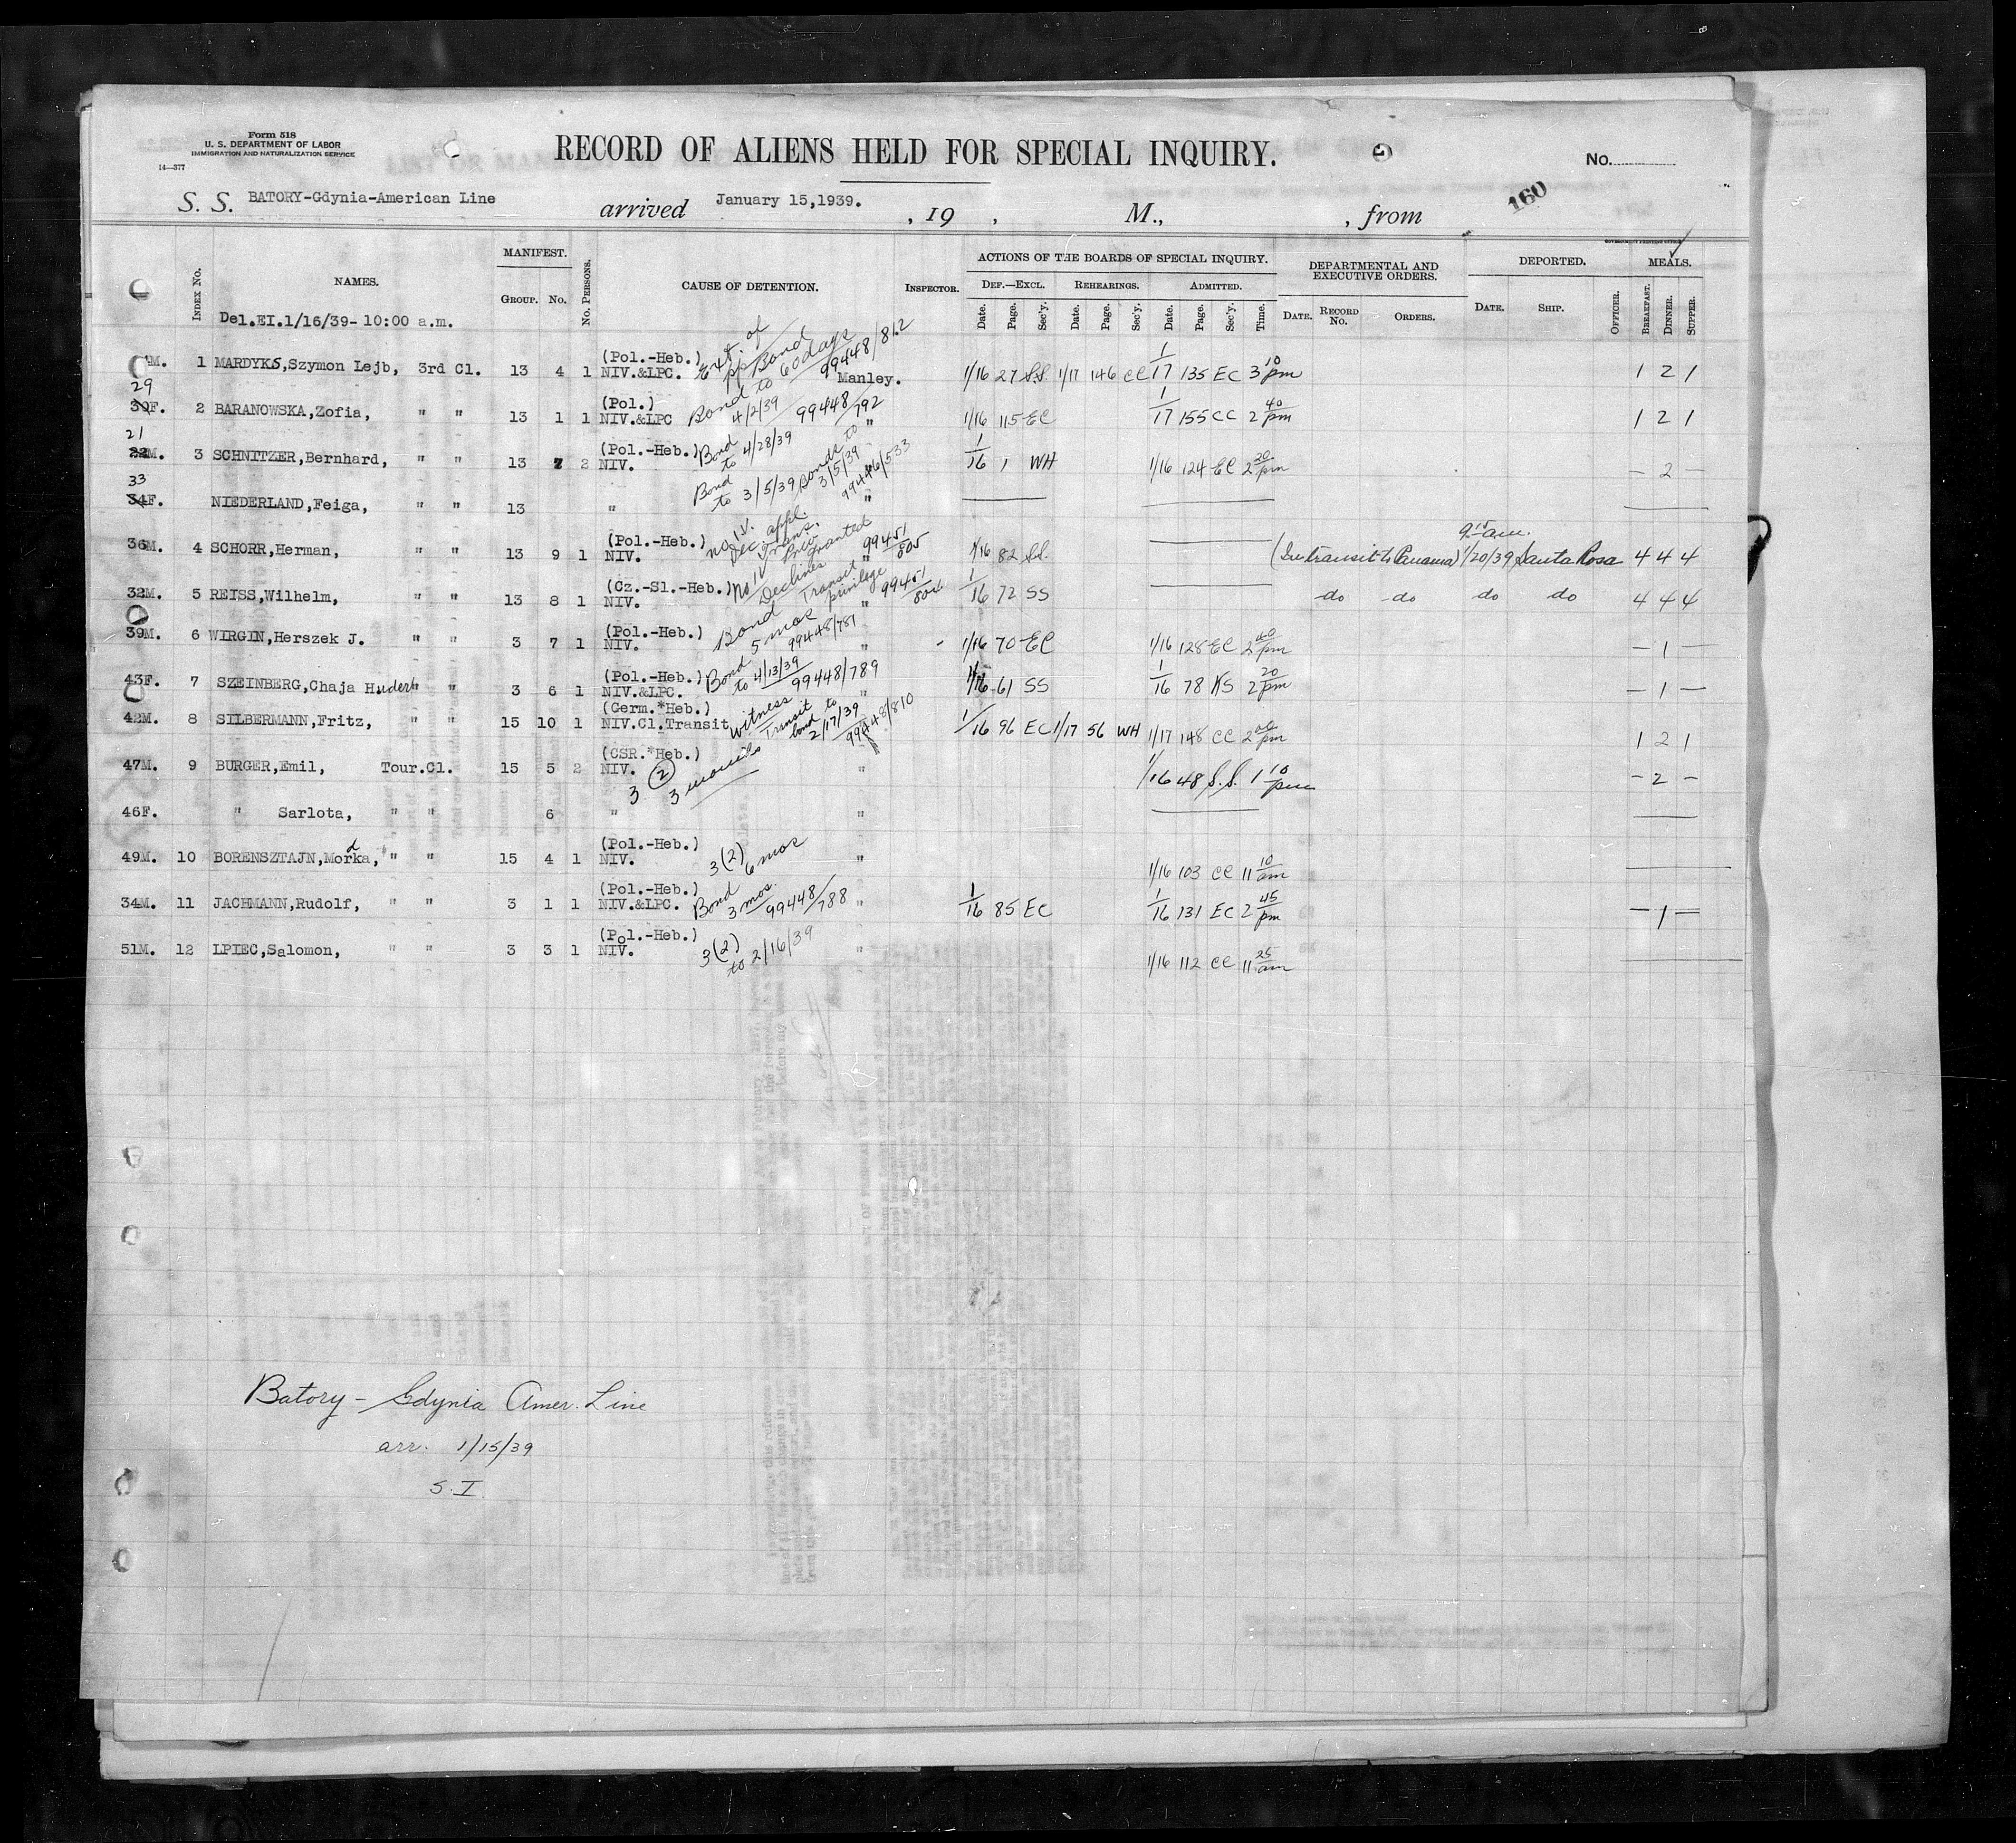 Form 518
U. S. DEPARTMENT OF LABOR
IMMIGRATION AND NATURALIZATION SERVICE
14—377
RECORD OF ALIENS HELD FOR SPECIAL INQUIRY.
No.
160
S. S. BATORY-Gdynia-American Line arrived January 15,1939. , 19 , M., , from
GOVERNMENT PRINTING OFFICE
INDEX No. NAMES. MANIFEST. GROUP. No. No. PERSONS. CAUSE OF DETENTION. INSPECTOR. ACTIONS OF THE BOARDS OF SPECIAL INQUIRY. DEPARTMENTAL AND EXECUTIVE ORDERS. DEPORTED. MEALS.
DEF.—EXCL. REHEARINGS. ADMITTED.
Date. Page. Sec'y. Date. Page. Sec'y. Date. Page. Sec'y. Time. DATE. RECORD No. ORDERS. DATE. SHIP. OFFICER. BREAKFAST. DINNER. SUPPER.
Del.EI.1/16/39-10:00 a.m.
(Pol.-Heb.) Ext. of
M. 1 MARDYKS,Szymon Lejb, 3rd Cl. 13 4 1 NIV.&LPC. Bond to 60 days 99448/812 Manley. 1/16 27 S.S. 1/17 146 CC 1/17 135 EC 3 10 pm 1 2 1
29
30F. 2 BARANOWSKA,Zofia, " " 13 1 1 (Pol.) NIV.&LPC Bond 4/2/39 99448/792 " 1/16 115 EC 1/17 155 CC 2 40 pm 1 2 1
21
22M. 3 SCHNITZER,Bernhard, " " 13 7 2 (Pol.-Heb.) NIV. Bond to 4/28/39 " 1/16 1 WH 1/16 124 EC 2 20 pm — 2 —
33
34F. NIEDERLAND,Feiga, " " 13 " Bond to 3/5/39 Bonds to 3/5/39 99446/533 "
9 15 am.
36M. 4 SCHORR,Herman, " " 13 9 1 (Pol.-Heb.) NIV. no IV. Dec. appl. Trans. Priv. granted 99451/805 " 1/16 82 SS. (In transit to Panama) 1/20/39 Santa Rosa 4 4 4
32M. 5 REISS,Wilhelm, " " 13 8 1 (Cz.-Sl.-Heb.) NIV. No IV Declines Transit privilege 99451/806 " 1/16 72 SS do do do do 4 4 4
39M. 6 WIRGIN,Herszek J. " " 3 7 1 (Pol.-Heb.) NIV. Bond 5 mos 99448/781 " 1/16 70 EC 1/16 128 EC 2 40 pm — 1 —
43F. 7 SZEINBERG,Chaja Huderk " " 3 6 1 (Pol.-Heb.) NIV.&LPC. Bond to 4/13/39 99448/789 " 1/16 61 SS 1/16 78 KS 2 20 pm — 1 —
42M. 8 SILBERMANN,Fritz, " " 15 10 1 (Germ.*Heb.) NIV.Cl.Transit witness Transit bond to 2/17/39 99448/810 1/16 96 EC 1/17 56 WH 1/17 148 CC 2 00 pm 1 2 1
47M. 9 BURGER,Emil, Tour.Cl. 15 5 2 (CSR.*Heb.) NIV. 3 (2) 3 months " 1/16 48 S.S. 1 10 pm — 2 —
46F. " Sarlota, " " 6 " "
49M. 10 BORENSZTAJN,Morka, d " " 15 4 1 (Pol.-Heb.) NIV. 3(2) 6 mos " 1/16 103 CC 11 10 am
34M. 11 JACHMANN,Rudolf, " " 3 1 1 (Pol.-Heb.) NIV.&LPC. Bond 3 mos. 99448/788 " 1/16 85 EC 1/16 131 EC 2 45 pm — 1 —
51M. 12 LPIEC,Salomon, " " 3 3 1 (Pol.-Heb.) NIV. 3(2) to 2/16/39 " 1/16 112 CC 11 25 am
Batory - Gdynia Amer. Line
arr. 1/15/39
S.I.